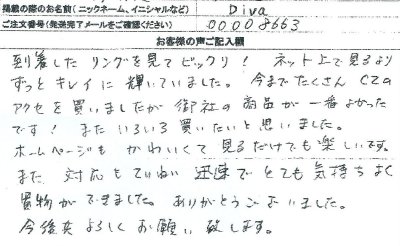 掲載の際のお名前(ニックネーム、イニシャルなど) Diva
ご注文番号(発送完了メールをご確認ください) 00008663
お客様の声ご記入欄
到着したリングを見てビックリ! ネット上で見るより
ずっとキレイに輝いていました。今までたくさんCZの
アクセを買いましたが御社の商品が一番よかった
です! またいろいろ買いたいと思いました。
ホームページもかわいくて見るだけでも楽しいです。
また、対応もていねい迅速でとても気持ちよく
買物ができました。ありがとうございました。
今後共よろしくお願い致します。